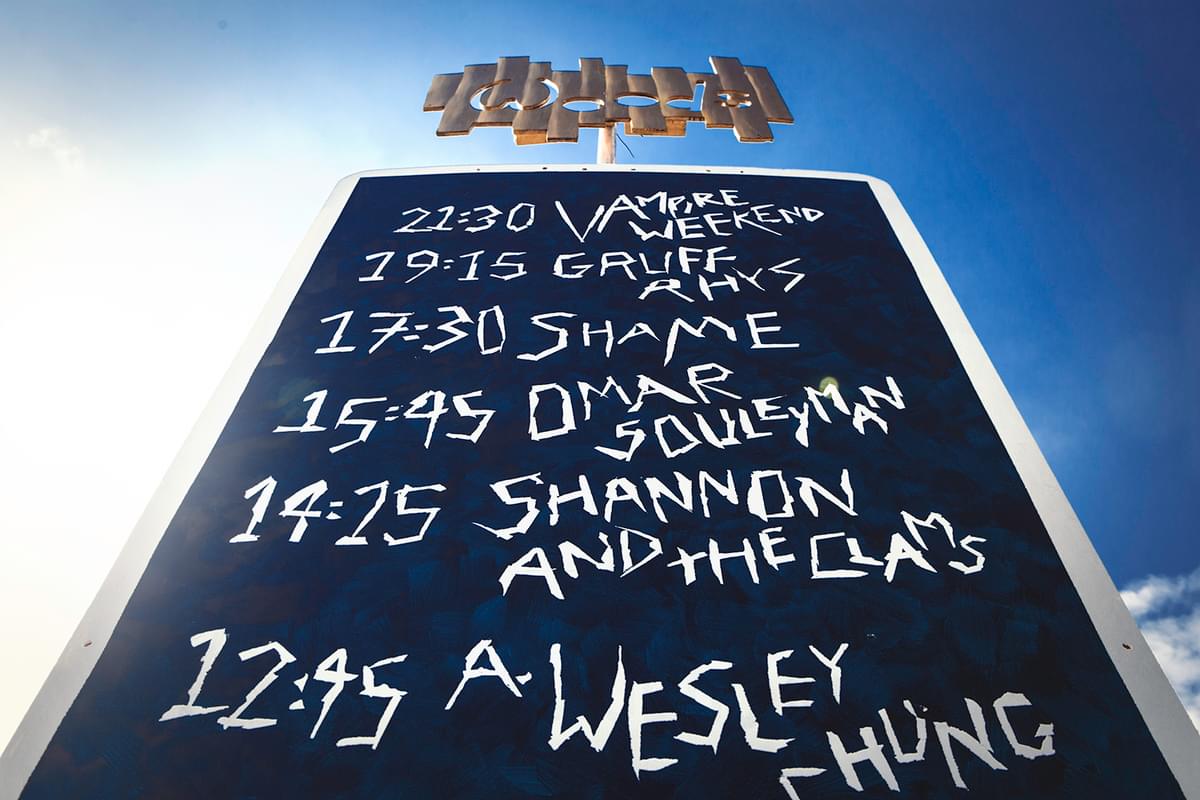 Woods
21:30 VAMPIRE
WEEKEND
19:15 GRUFF
RHYS
17:30 SHAME
15:45 OMAR
SOULEYMAN
14:15 SHANNON
AND THE CLAMS
12:45 A. WESLEY
CHUNG